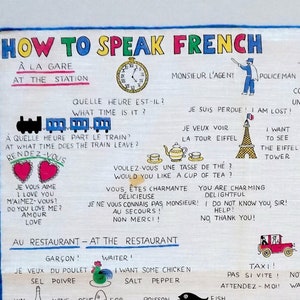 HOW TO SPEAK FRENCH
À LA GARE
AT THE STATION
MONSIEUR L'AGENT
POLICEMAN
QUELLE HEURE EST-IL?
WHAT TIME IS IT?
JE SUIS PERDUE! I AM LOST!
À QUELLE HEURE PART LE TRAIN?
AT WHAT TIME DOES THE TRAIN LEAVE?
JE VEUX VOIR I WANT
LA TOUR EIFFEL TO SEE
THE EIFFEL
TOWER
RENDEZ-VOUS
VOULEZ-VOUS UNE TASSE DE THÉ?
WOULD YOU LIKE A CUP OF TEA?
JE VOUS AIME
I LOVE YOU
M'AIMEZ-VOUS?
DO YOU LOVE ME?
AMOUR
LOVE
VOUS ÊTES CHARMANTE YOU ARE CHARMING
DÉLICIEUSE DELIGHTFUL
JE NE VOUS CONNAIS PAS MONSIEUR. I DO NOT KNOW YOU SIR!
AU SECOURS! HELP!
NON MERCI! NO THANK YOU!
AU RESTAURANT - AT THE RESTAURANT
GARÇON! WAITER!
JE VEUX DU POULET I WANT SOME CHICKEN
SEL POIVRE SALT PEPPER
TAXI!
PAS SI VITE!
ATTENDEZ-MOI!
POISSON FISH